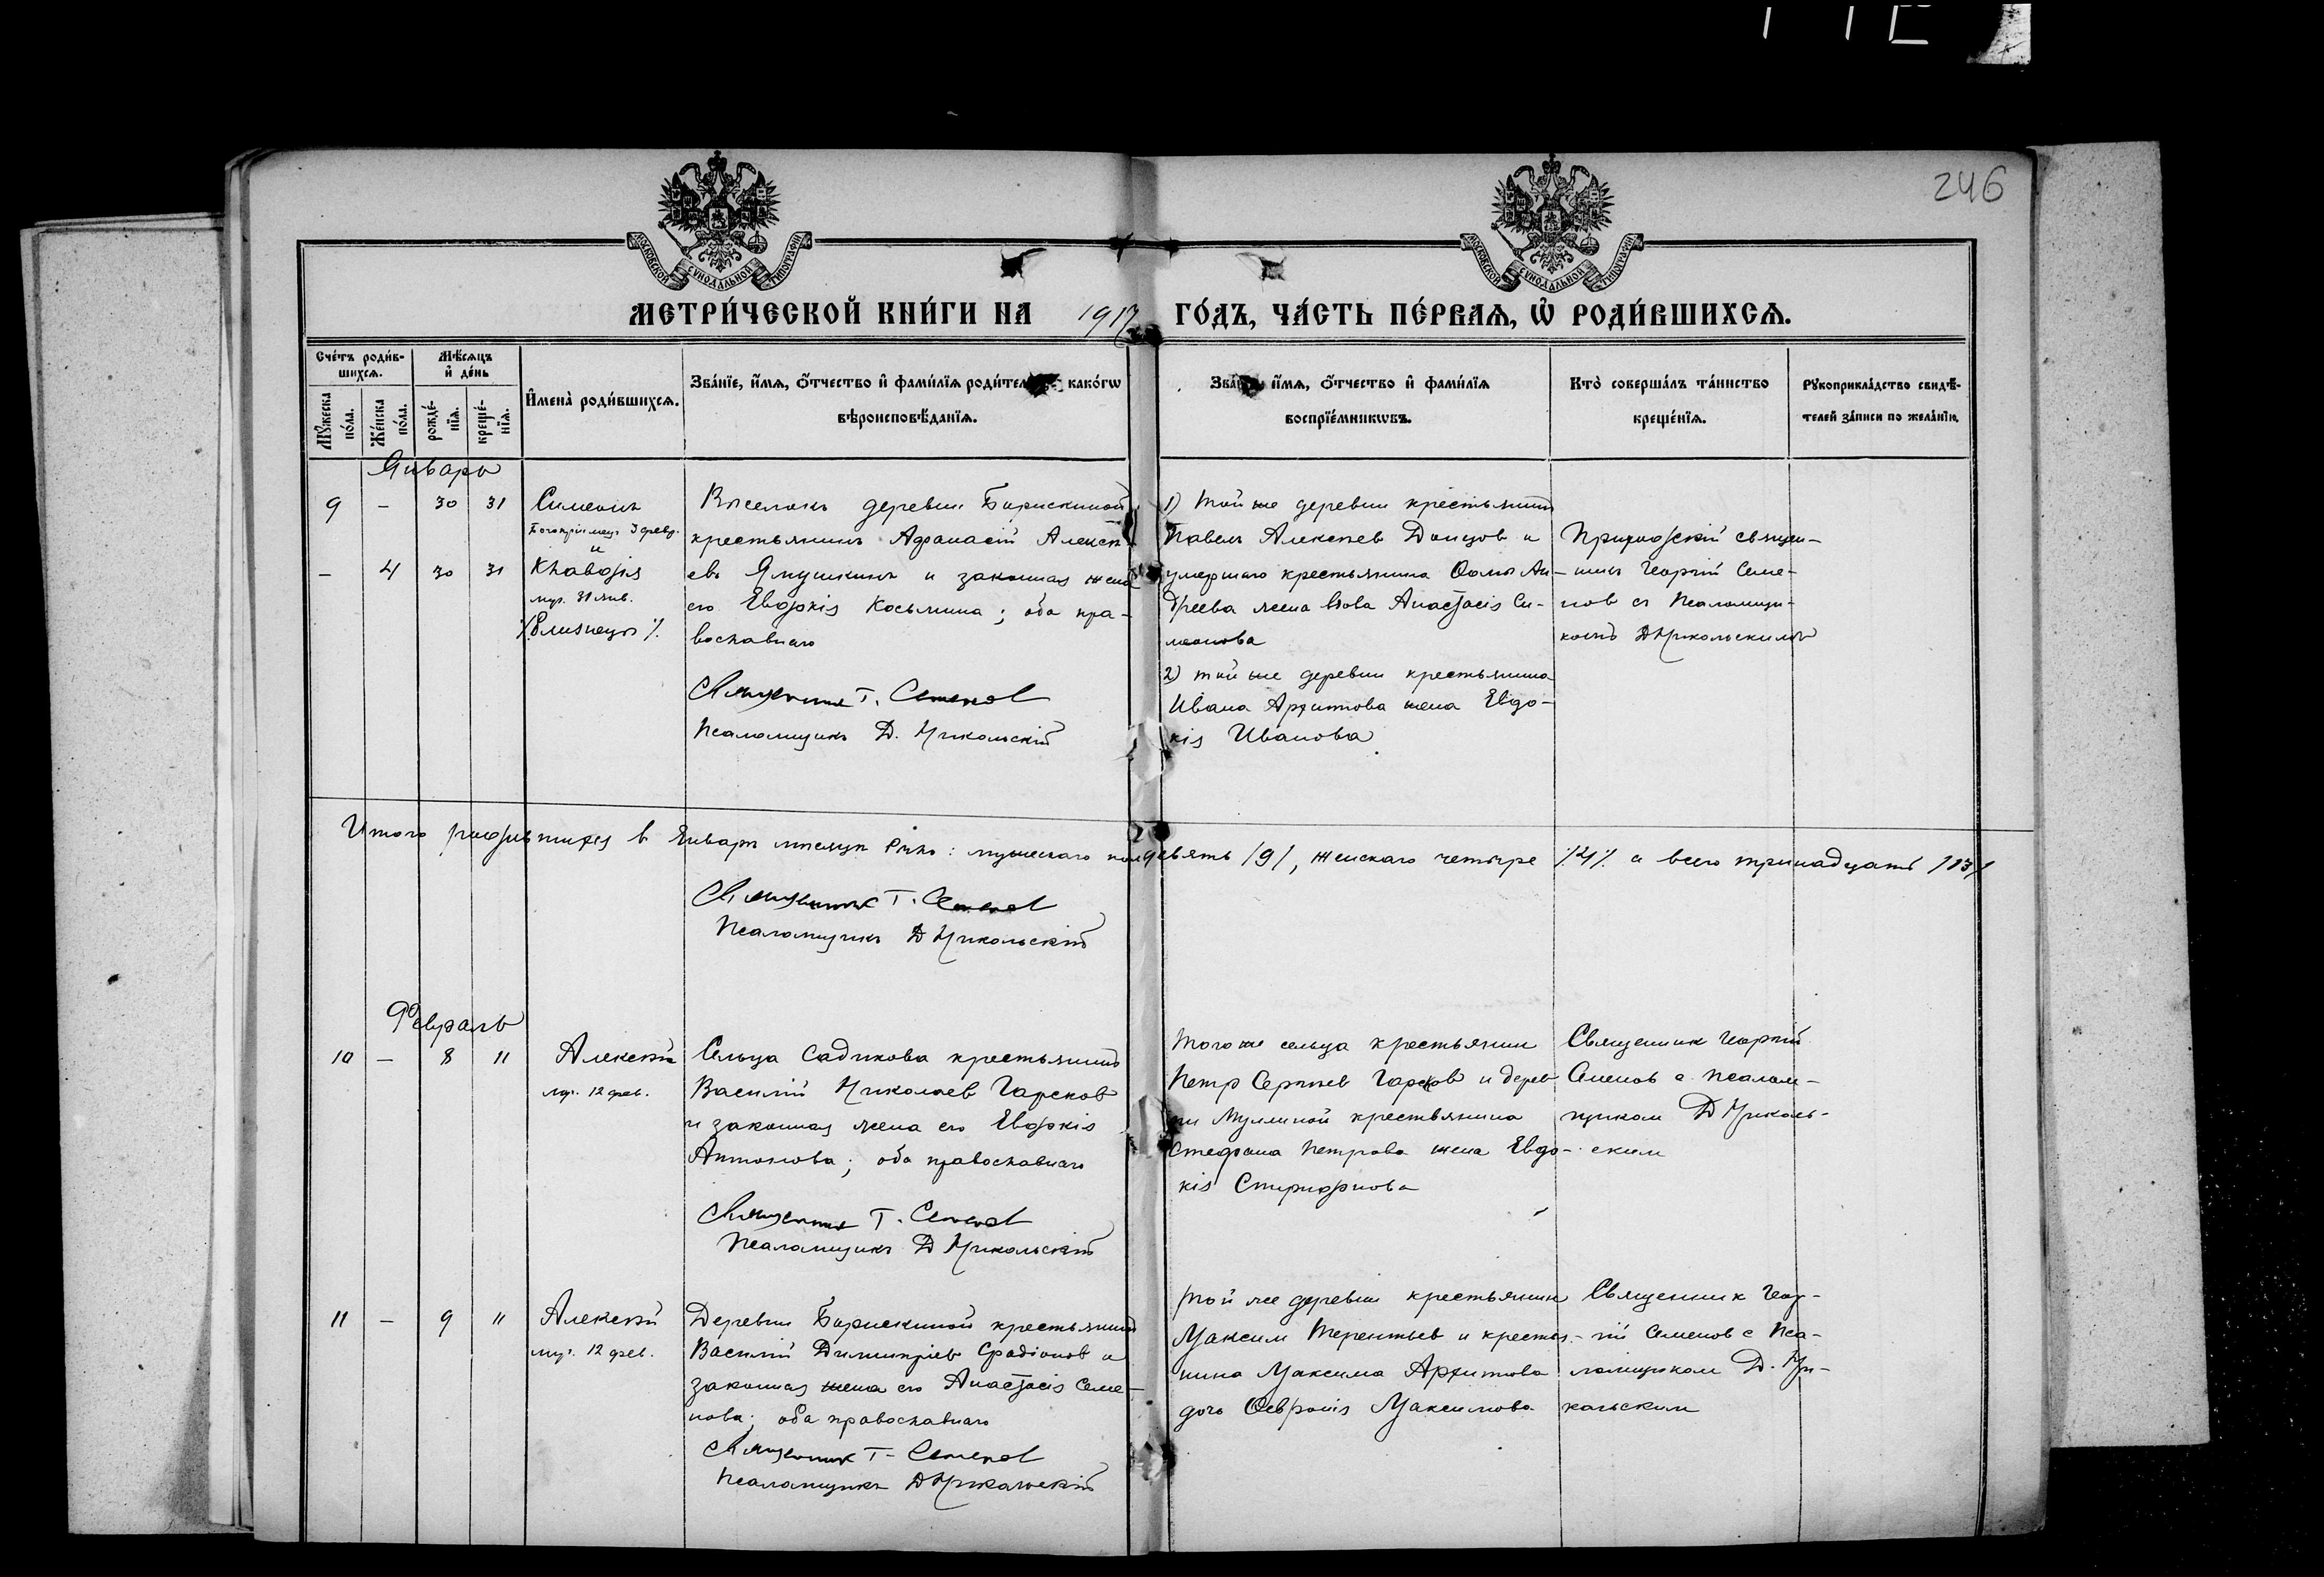 246
МОСКОВСКОЙ СѴНОДАЛЬНОЙ ТИПОГРАФІИ
МОСКОВСКОЙ СѴНОДАЛЬНОЙ ТИПОГРАФІИ
МЕТРИ́ЧЕСКОЙ КНИ́ГИ НА 1917 ГО́ДЪ, ЧА́СТЬ ПЕ́РВАѦ, Ѡ҆ РОДИ́ВШИХСѦ.
Сче́тъ роди́в-
шихсѧ.
Мѣ́сѧцъ
и҆ де́нь
Мꙋ́жеска по́ла.
Же́нска по́ла.
рожде́-
нїѧ.
креще́-
нїѧ.
И҆мена̀ роди́вшихсѧ.
Зва́нїе, и҆́мѧ, ѻ҆́тчество и҆ фами́лїѧ роди́тел какѡ́гѡ
вѣроисповѣ́данїѧ.
Зва́ и҆́мѧ, ѻ҆́тчество и҆ фами́лїѧ
воспрїе́мникѡвъ.
Кто̀ соверша́лъ та́инство
креще́нїѧ.
Рꙋкоприкла́дство свидѣ́-
телей за́писи по жела́нїю.
Январь
9 - 30 31
Симеонъ
Богопріимец 3 февр.
и
- 4 30 31
Клавдія
муч. 31 янв.
/Близнецы/
Выселокъ деревни Борискиной
крестьянинъ Афанасій Алексѣ-
евъ Ямушкинъ и законная жена
его Евдокія Косьмина; оба пра-
вославнаго
Священник Г. Семенов
Псаломщикъ Д. Никольскій
1) той же деревни крестьянинъ
Павелъ Алексѣев Донцов и
умершаго крестьянина Ѳомы Ан-
дреева жена вдова Анастасія Си-
меонова
2) той же деревни крестьянина
Ивана Архипова жена Евдо-
кія Иванова
Приходскій священ-
никъ Георгій Семе-
нов съ Псаломщи-
комъ Д Никольскимъ
Итого родившихся в Январѣ мѣсяцѣ было: мужескаго пол девять /9/, женскаго четыре /4/ а всего тринадцать /13/
Священник Г. Семенов
Псаломщикъ Д Никольскій
Февраль
10 - 8 11
Алексій
мр. 12 фев.
Сельца Садикова крестьянинъ
Василій Николаев Гарсков
и законная жена его Евдокія
Антонова; оба православнаго
Священник Г. Семенов
Псаломщикъ Д Никольскій
Того же сельца крестьянин
Петр Сергѣев Гарсков и дерев-
ни Муминой крестьянина
Стефана Петрова жена Евдо-
кія Спиридонова
Священник Георгій
Семенов с псалом-
щиком Д Николь-
ским
11 - 9 11
Алексій
мр. 12 фев.
Деревни Борискиной крестьянинъ
Василій Димитріев Сродіонов и
законная жена его Анастасія Семе-
нова; оба православнаго
Священник Г. Семенов
Псаломщикъ Д Никольскій
Той же деревни крестьянин
Максим Терентьев и крестья-
нина Максима Архипова
дочь Февронія Максимова
Священник Геор-
гій Семенов с Пса-
ломщиком Д. Ни-
кольским